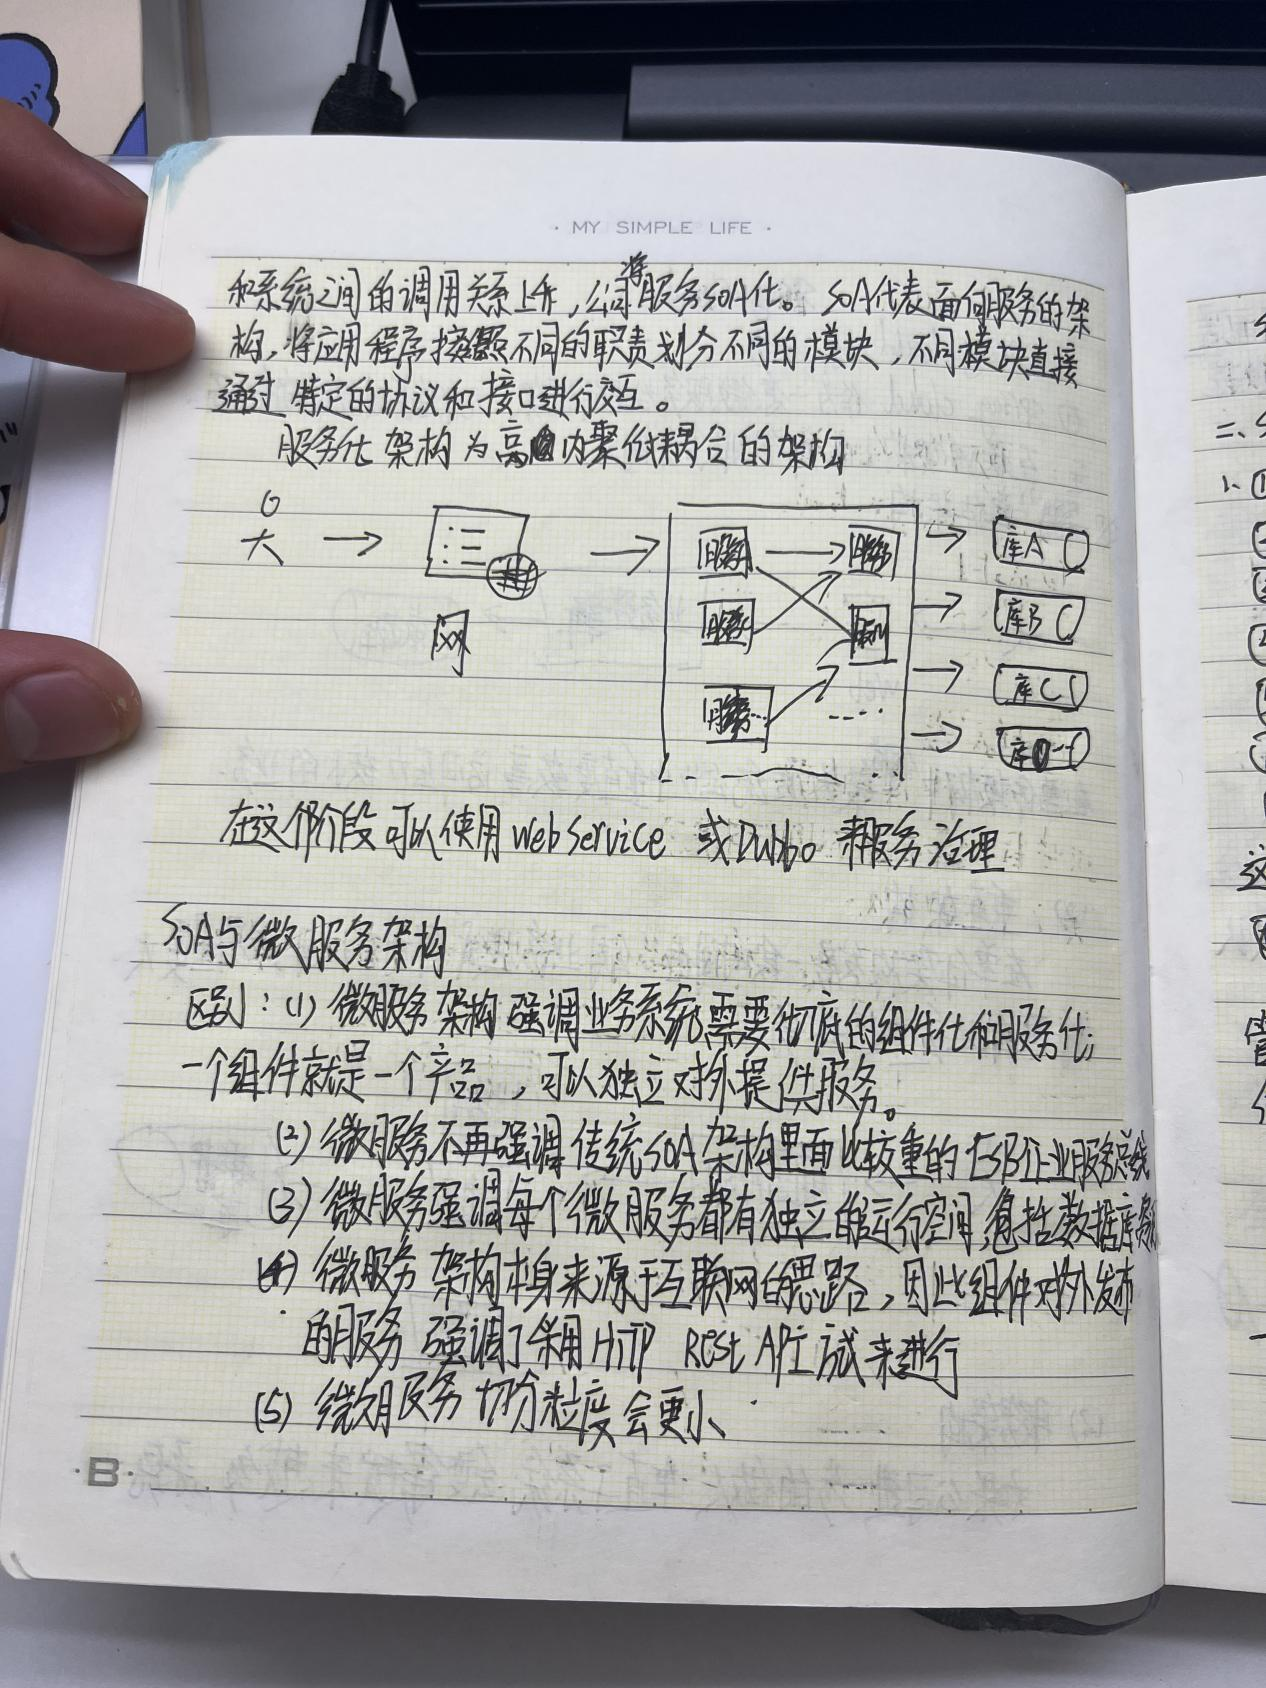 · MY SIMPLE LIFE ·
和系统之间的调用关系上升，公司将服务SOA化。 SOA代表面向服务的架
构，将应用程序按照不同的职责划分不同的模块，不同模块直接
通过特定的协议和接口进行交互。
服务化架构为高内聚低耦合的架构
服务 服务 库A
网 服务 库B
服务 ... .... 库C
库
在这个阶段可以使用webService 或Dubbo 来服务治理
SOA与微服务架构
区别：(1) 微服务架构强调业务系统需要彻底的组件化和服务化；
一个组件就是一个产品，可以独立对外提供服务。
(2) 微服务不再强调传统SOA架构里面比较重的ESB企业服务总线
(3) 微服务强调每个微服务都有独立的运行空间，包括数据库
(4) 微服务架构本身来源于互联网的思路，因此组件对外发布
的服务强调了采用HTTP Rest API方式来进行
(5) 微服务切分粒度会更小
·B·
二、